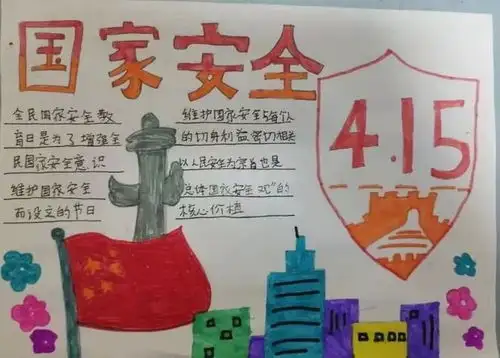 国家安全
全民国家安全教
育日是为了增强全
民国家安全意识
维护国家安全
而设立的节日
维护国家安全与每个人
的切身利益密切相关
以人民安全为宗旨也是
总体国家安全观"的
核心价值
4.15